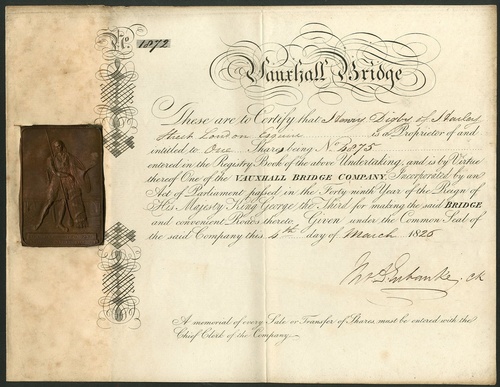 No. 1872
Vauxhall Bridge
These are to Certify that Henry Digby of Harley
Street London Esquire is a Proprietor of and
entitled to One Share being No. 4875
entered in the Registry Book of the above Undertaking, and is by Virtue
thereof One of the VAUXHALL BRIDGE COMPANY, Incorporated by an
Act of Parliament passed in the Forty ninth Year of the Reign of
His Majesty King George the Third for making the said BRIDGE
and convenient Roads thereto, Given under the Common Seal of
the said Company this 4th day of March 1825
Ck
A memorial of every Sale or Transfer of Shares must be entered with the
Chief Clerk of the Company